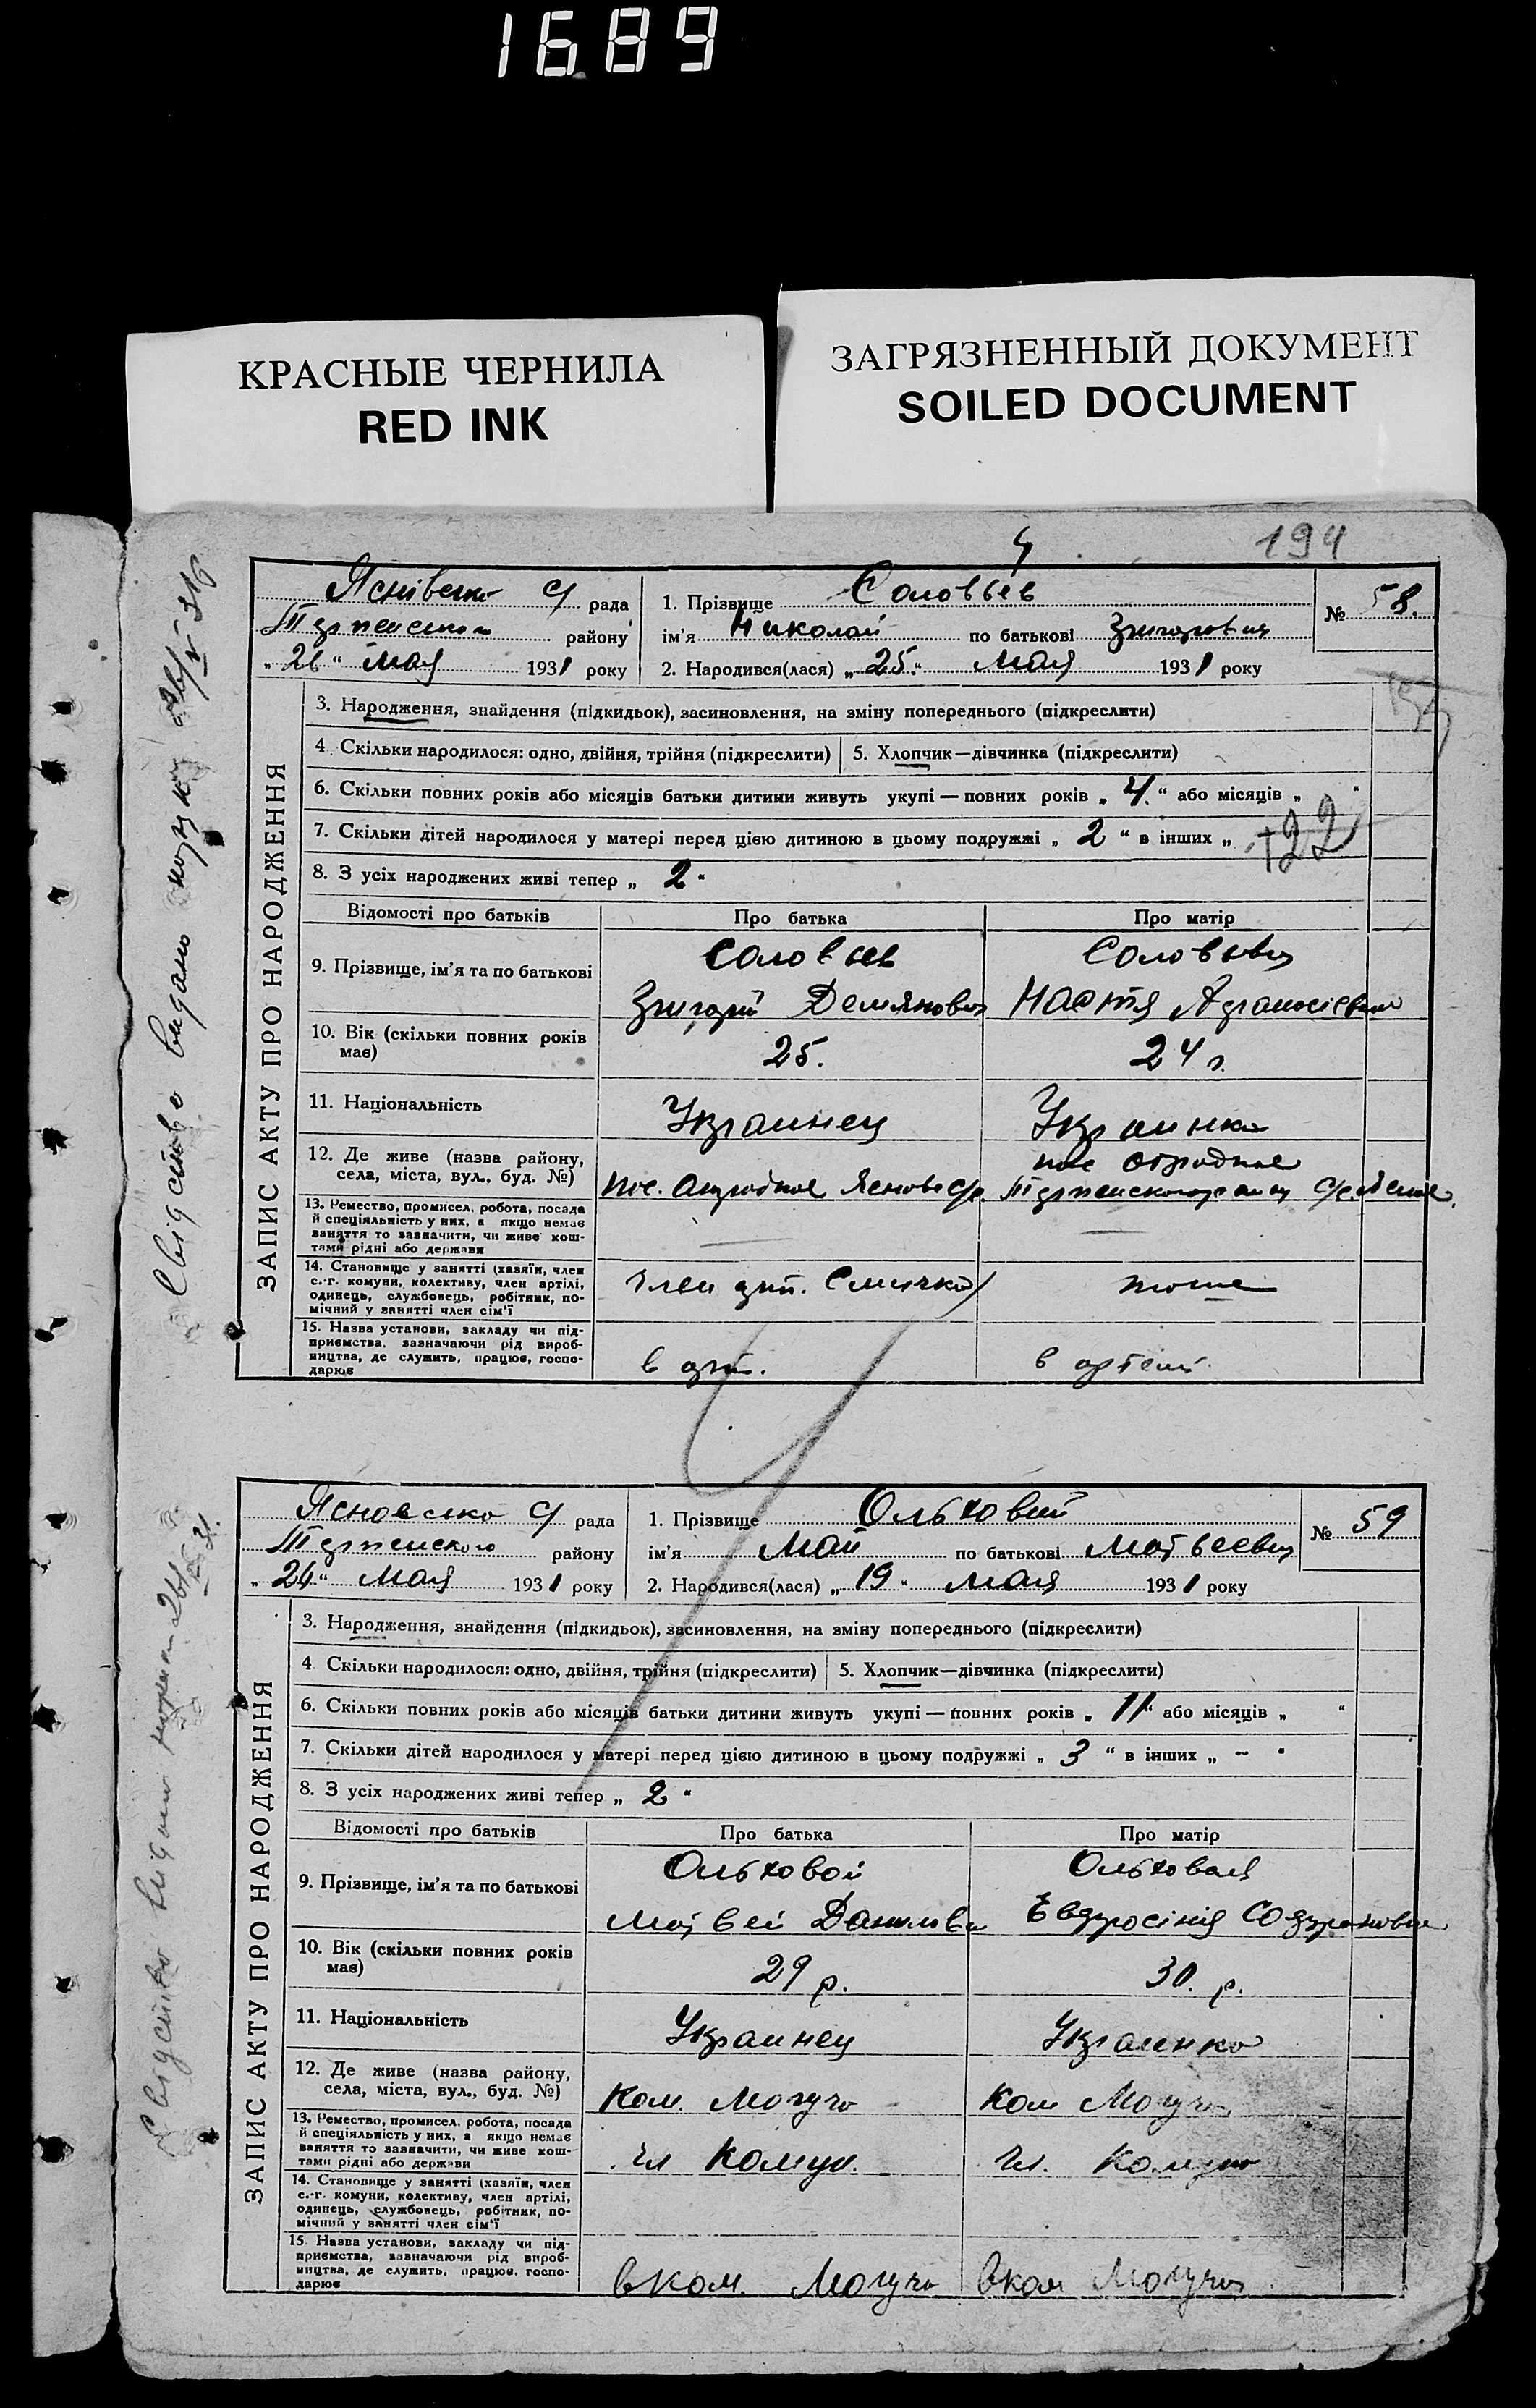 1689
КРАСНЫЕ ЧЕРНИЛА
RED INK
ЗАГРЯЗНЕННЫЙ ДОКУМЕНТ
SOILED DOCUMENT
194
рада
району
„ 26 “ мая 1931 року
1. Прізвище Соловьев
ім’я Николай по батькові
2. Народився(лася) „ 25 “ мая 1931 року
№ 58.
ЗАПИС АКТУ ПРО НАРОДЖЕННЯ
3. Народження, знайдення (підкидьок), засиновлення, на зміну попереднього (підкреслити)
4 Скільки народилося: одно, двійня, трійня (підкреслити) 5. Хлопчик—дівчинка (підкреслити)
6. Скільки повних років або місяців батьки дитини живуть укупі — повних років „ 4. “ або місяців „ “
7. Скільки дітей народилося у матері перед цією дитиною в цьому подружжі „ 2 “ в інших „
8. З усіх народжених живі тепер „ 2 “
Відомості про батьків Про батька Про матір
9. Прізвище, ім’я та по батькові
Соловьев
Соловьева
Настя
10. Вік (скільки повних років має)
25.
24 г.
11. Національність
Украинец
Украинка
12. Де живе (назва району,
села, міста, вул., буд. №)
13. Ремество, промисел, робота, посада
й спеціяльність у них, а якщо немає
заняття то зазначити, чи живе кош-
тами рідні або держави
14. Становище у занятті (хазяїн, член
с.-г. комуни, колективу, член артілі,
одинець, службовець, робітник, по-
мічний у занятті член сім’ї
член арт. Смичка
тоже
15. Назва установи, закладу чи під-
приємства, зазначаючи рід вироб-
ництва, де служить, працює, госпо-
дарює
в арт.
в артели
рада
району
„ 26 “ мая 1931 року
1. Прізвище Ольховий
ім’я Май по батькові Матвеевич
2. Народився(лася) „ 19 “ мая 1931 року
№ 59
ЗАПИС АКТУ ПРО НАРОДЖЕННЯ
3. Народження, знайдення (підкидьок), засиновлення, на зміну попереднього (підкреслити)
4 Скільки народилося: одно, двійня, трійня (підкреслити) 5. Хлопчик—дівчинка (підкреслити)
6. Скільки повних років або місяців батьки дитини живуть укупі — повних років „ 11 “ або місяців „ “
7. Скільки дітей народилося у матері перед цією дитиною в цьому подружжі „ 3 “ в інших „ – “
8. З усіх народжених живі тепер „ 2 “
Відомості про батьків Про батька Про матір
9. Прізвище, ім’я та по батькові
Ольховой
Ольховая
Матвей
10. Вік (скільки повних років має)
29 р.
30. р.
11. Національність
Украинец
Украинка
12. Де живе (назва району,
села, міста, вул., буд. №)
Ком. Могуча
Ком Могуча
13. Ремество, промисел, робота, посада
й спеціяльність у них, а якщо немає
заняття то зазначити, чи живе кош-
тами рідні або держави
чл Комун.
чл.
14. Становище у занятті (хазяїн, член
с.-г. комуни, колективу, член артілі,
одинець, службовець, робітник, по-
мічний у занятті член сім’ї
15. Назва установи, закладу чи під-
приємства, зазначаючи рід вироб-
ництва, де служить, працює, госпо-
дарює
в ком. Могуча
в ком Могуча